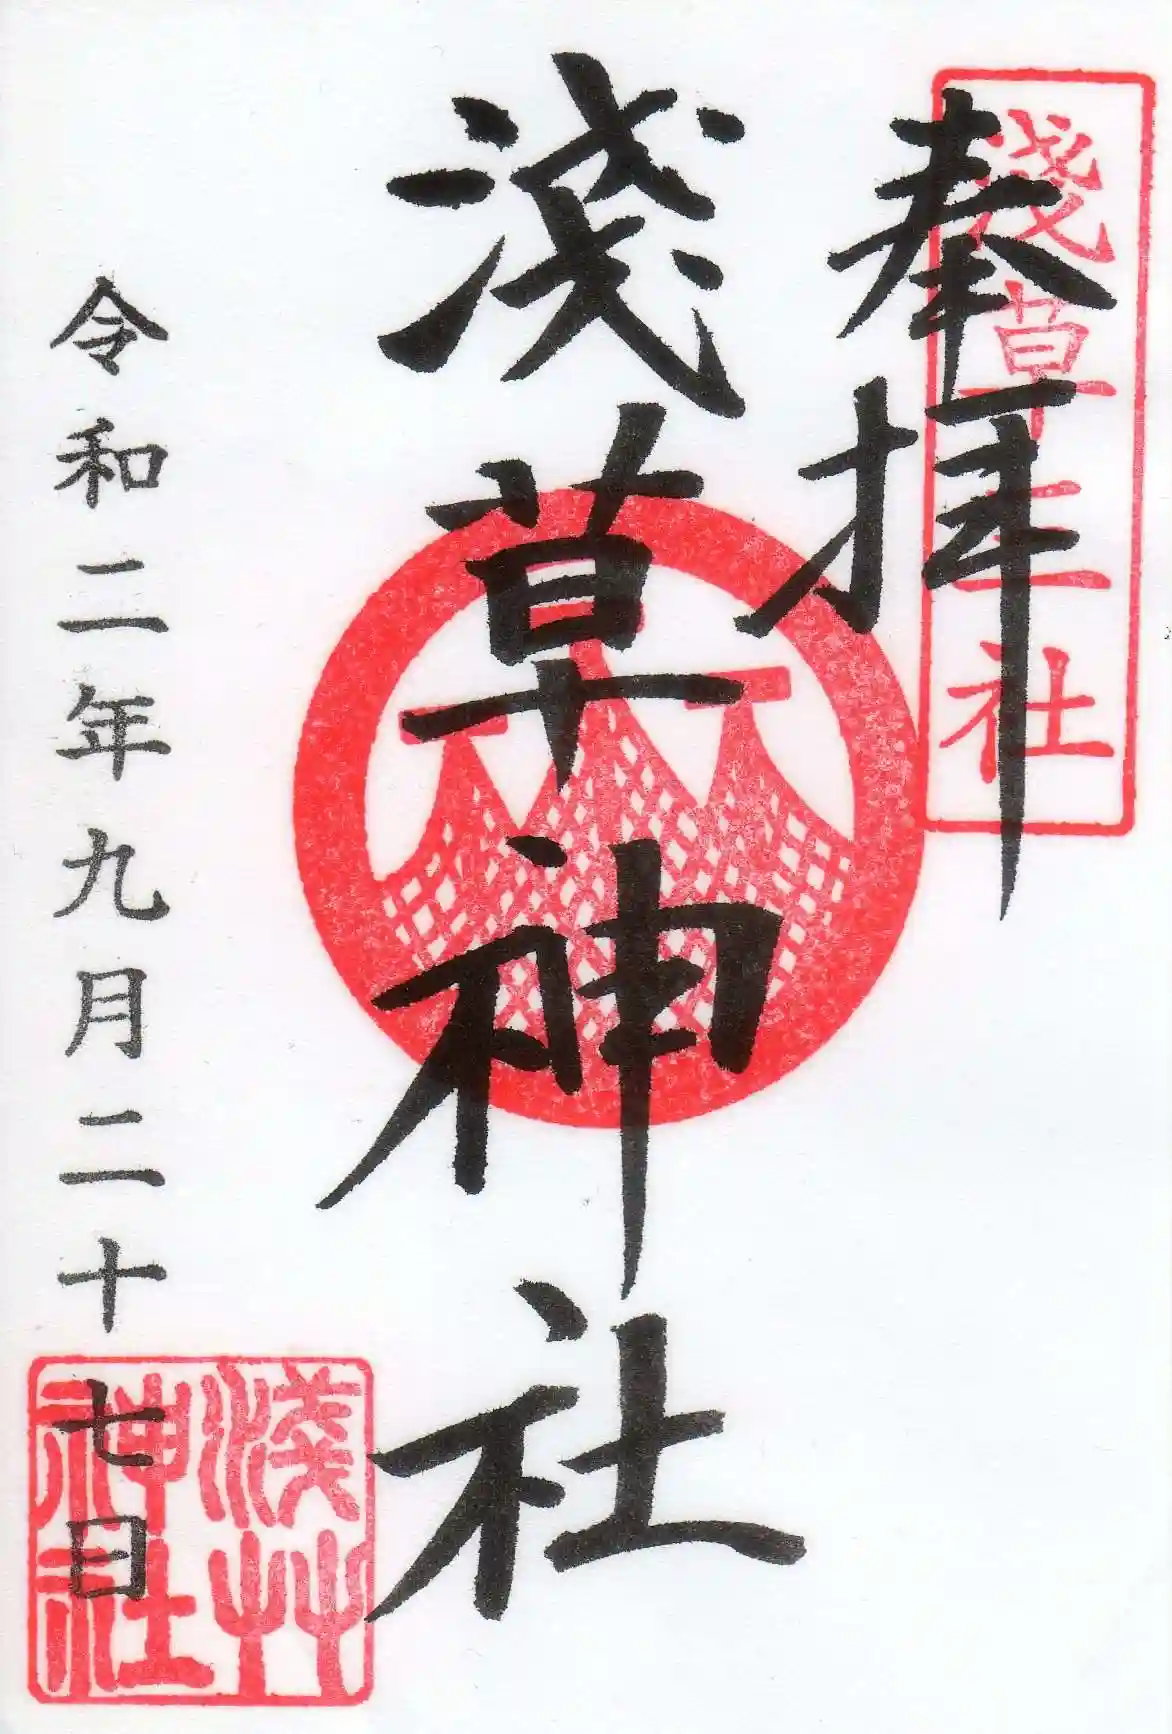 奉拝
淺草三社
淺草神社
令和二年九月二十七日
淺艸
神社